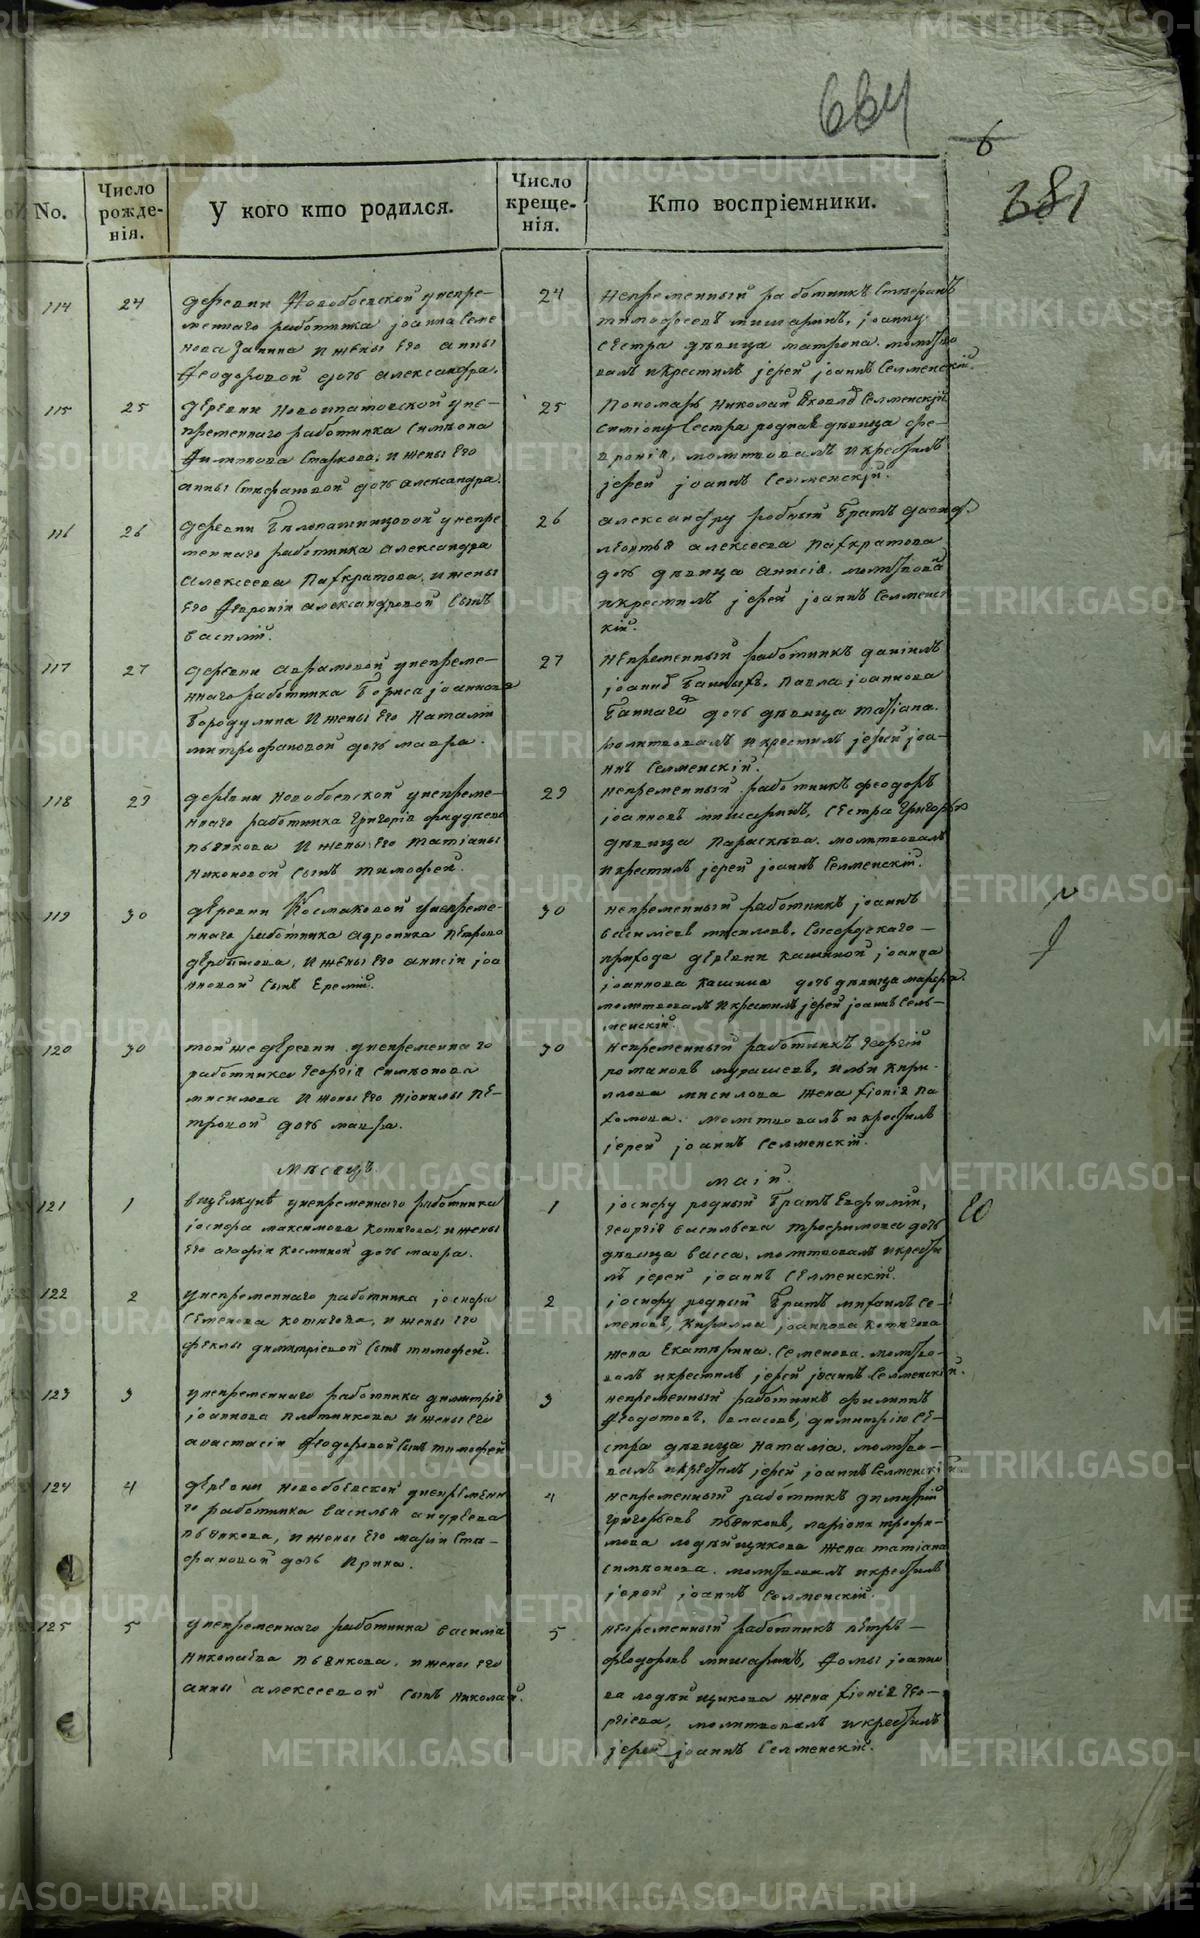 664
6
381
No.
Число рожде-нія.
У кого кто родился.
Число креще-нія.
Кто воспріемники.
114
24
деревни Новобоевской унепре-
меннаго работника Іоанна Семе
нова и жены его Анны
Феодоровой дочь Александра.
24
Непременный работникъ Стефанъ
Тимофеевъ Мишаринъ, Іоанну
сестра девица Матрона. молитво
валъ и крестилъ іерей Іоаннъ Селменскій.
115
25
деревни Новоипатовской уне-
пременнаго работника Симеона
Филипова Старкова, и жены его
Анны Стефановой дочь Александра.
25
Пономарь Николай Селменскій
Симіону сестра родная девица Фе-
вронія, молитвовалъ и крестилъ
іерей Іоаннъ Селменскій.
116
26
деревни унепре
меннаго работника Александра
Алексеева Панкратова и жены
его Февроніи Александровой сынъ
Василій.
26
Александру родный братъ
Леонтья Алексеева Панкратова
дочь девица Анисія. молитвова
и крестилъ іерей Іоаннъ Селменс
кій.
117
27
деревни Аврамовой унепреме-
ннаго работника Бориса Іоаннова
Бородулина и жены его Наталіи
Митрофановой дочь Мавра.
27
Непременный работникъ Даніилъ
Іоанновъ Банныхъ, Павла Іоаннова
Баннаго дочь девица Татіана.
молитвовалъ и крестилъ іерей Іоа-
ннъ Селменскій.
118
29
деревни Новобоевской унепреме-
ннаго работника Григорія Фаддеева
Пьянкова и жены его Татіаны
Никоновой сынъ Тимофей.
29
непременный работникъ Феодоръ
Іоанновъ Мишаринъ, сестра Григорья
девица Параскева. молитвовалъ
и крестилъ іерей Іоаннъ Селменскій.
119
30
деревни Космаковой унепреме-
ннаго работника Адроника Петрова
и жены его Анисіи Іоа
нновой сынъ Еремій.
30
непременный работникъ Іоаннъ
Василіевъ Мисиловъ, Сысерцкаго
прихода деревни Кашиной Іоанна
Іоаннова Кашина дочь девица Марфа.
молитвовалъ и крестилъ іерей Іоаннъ Сель-
менскій.
120
30
той же деревни унепременнаго
работника Георгія Симеонова
Мисилова и жены его Неонилы Пе-
тровой дочь Мавра.
30
Непременный работникъ Георгій
Романовъ Мурашевъ, Ильи Кири-
ллова Мисилова жена Хіонія Па
хомова. молитвовалъ и крестилъ
іерей Іоаннъ Селменскій.
Месяцъ
Маій.
121
1
унепременнаго работника
Іосифа Максимова Котигова, и жены
его Агафіи Косминой дочь Мавра.
1
Іосифу родный братъ Евфимій,
Георгія Васильева Трофимова дочь
девица Васса, молитвовалъ и крести
лъ іерей Іоаннъ Селменскій.
20
122
2
унепременнаго работника Іосифа
Семенова Котигова, и жены его
Феклы Димитріевой сынъ Тимофей.
2
Іосифу родный братъ Михаилъ Се-
меновъ, Кирилла Іоаннова Котигова
жена Екатерина Семенова. молитво-
валъ и крестилъ іерей Іоаннъ Селменскій.
123
3
унепременнаго работника Димитрія
Іоаннова Плотникова и жены его
Анастасіи Феодоровой сынъ Тимофей
3
непременный работникъ Филиппъ
Феодотовъ Власовъ, Димитрію се-
стра девица Наталіа. молитво-
валъ и крестилъ іерей Іоаннъ Селменскій.
124
4
деревни Новобоевской унепременн
го работника Василья Андреева
Пьянкова, и жены его Маріи Сте-
фановой дочь Ирина.
4
непременный работникъ Димитрій
Григорьевъ Пьянковъ, Ларіона Трофи-
мова жена Татіана
Симеонова. молитвовалъ и крестилъ
іерей Іоаннъ Селменскій
125
5
унепременнаго работника Василья
Николаева Пьянкова, и жены его
Анны Алексеевой сынъ Николай.
5
непременный работникъ Петръ
Феодоровъ Мишаринъ, Фомы Іоанно
ва жена Хіонія Гео-
ргіева, молитвовалъ и крестилъ
іерей Іоаннъ Селменскій.
METRIKI.GASO-URAL.RU